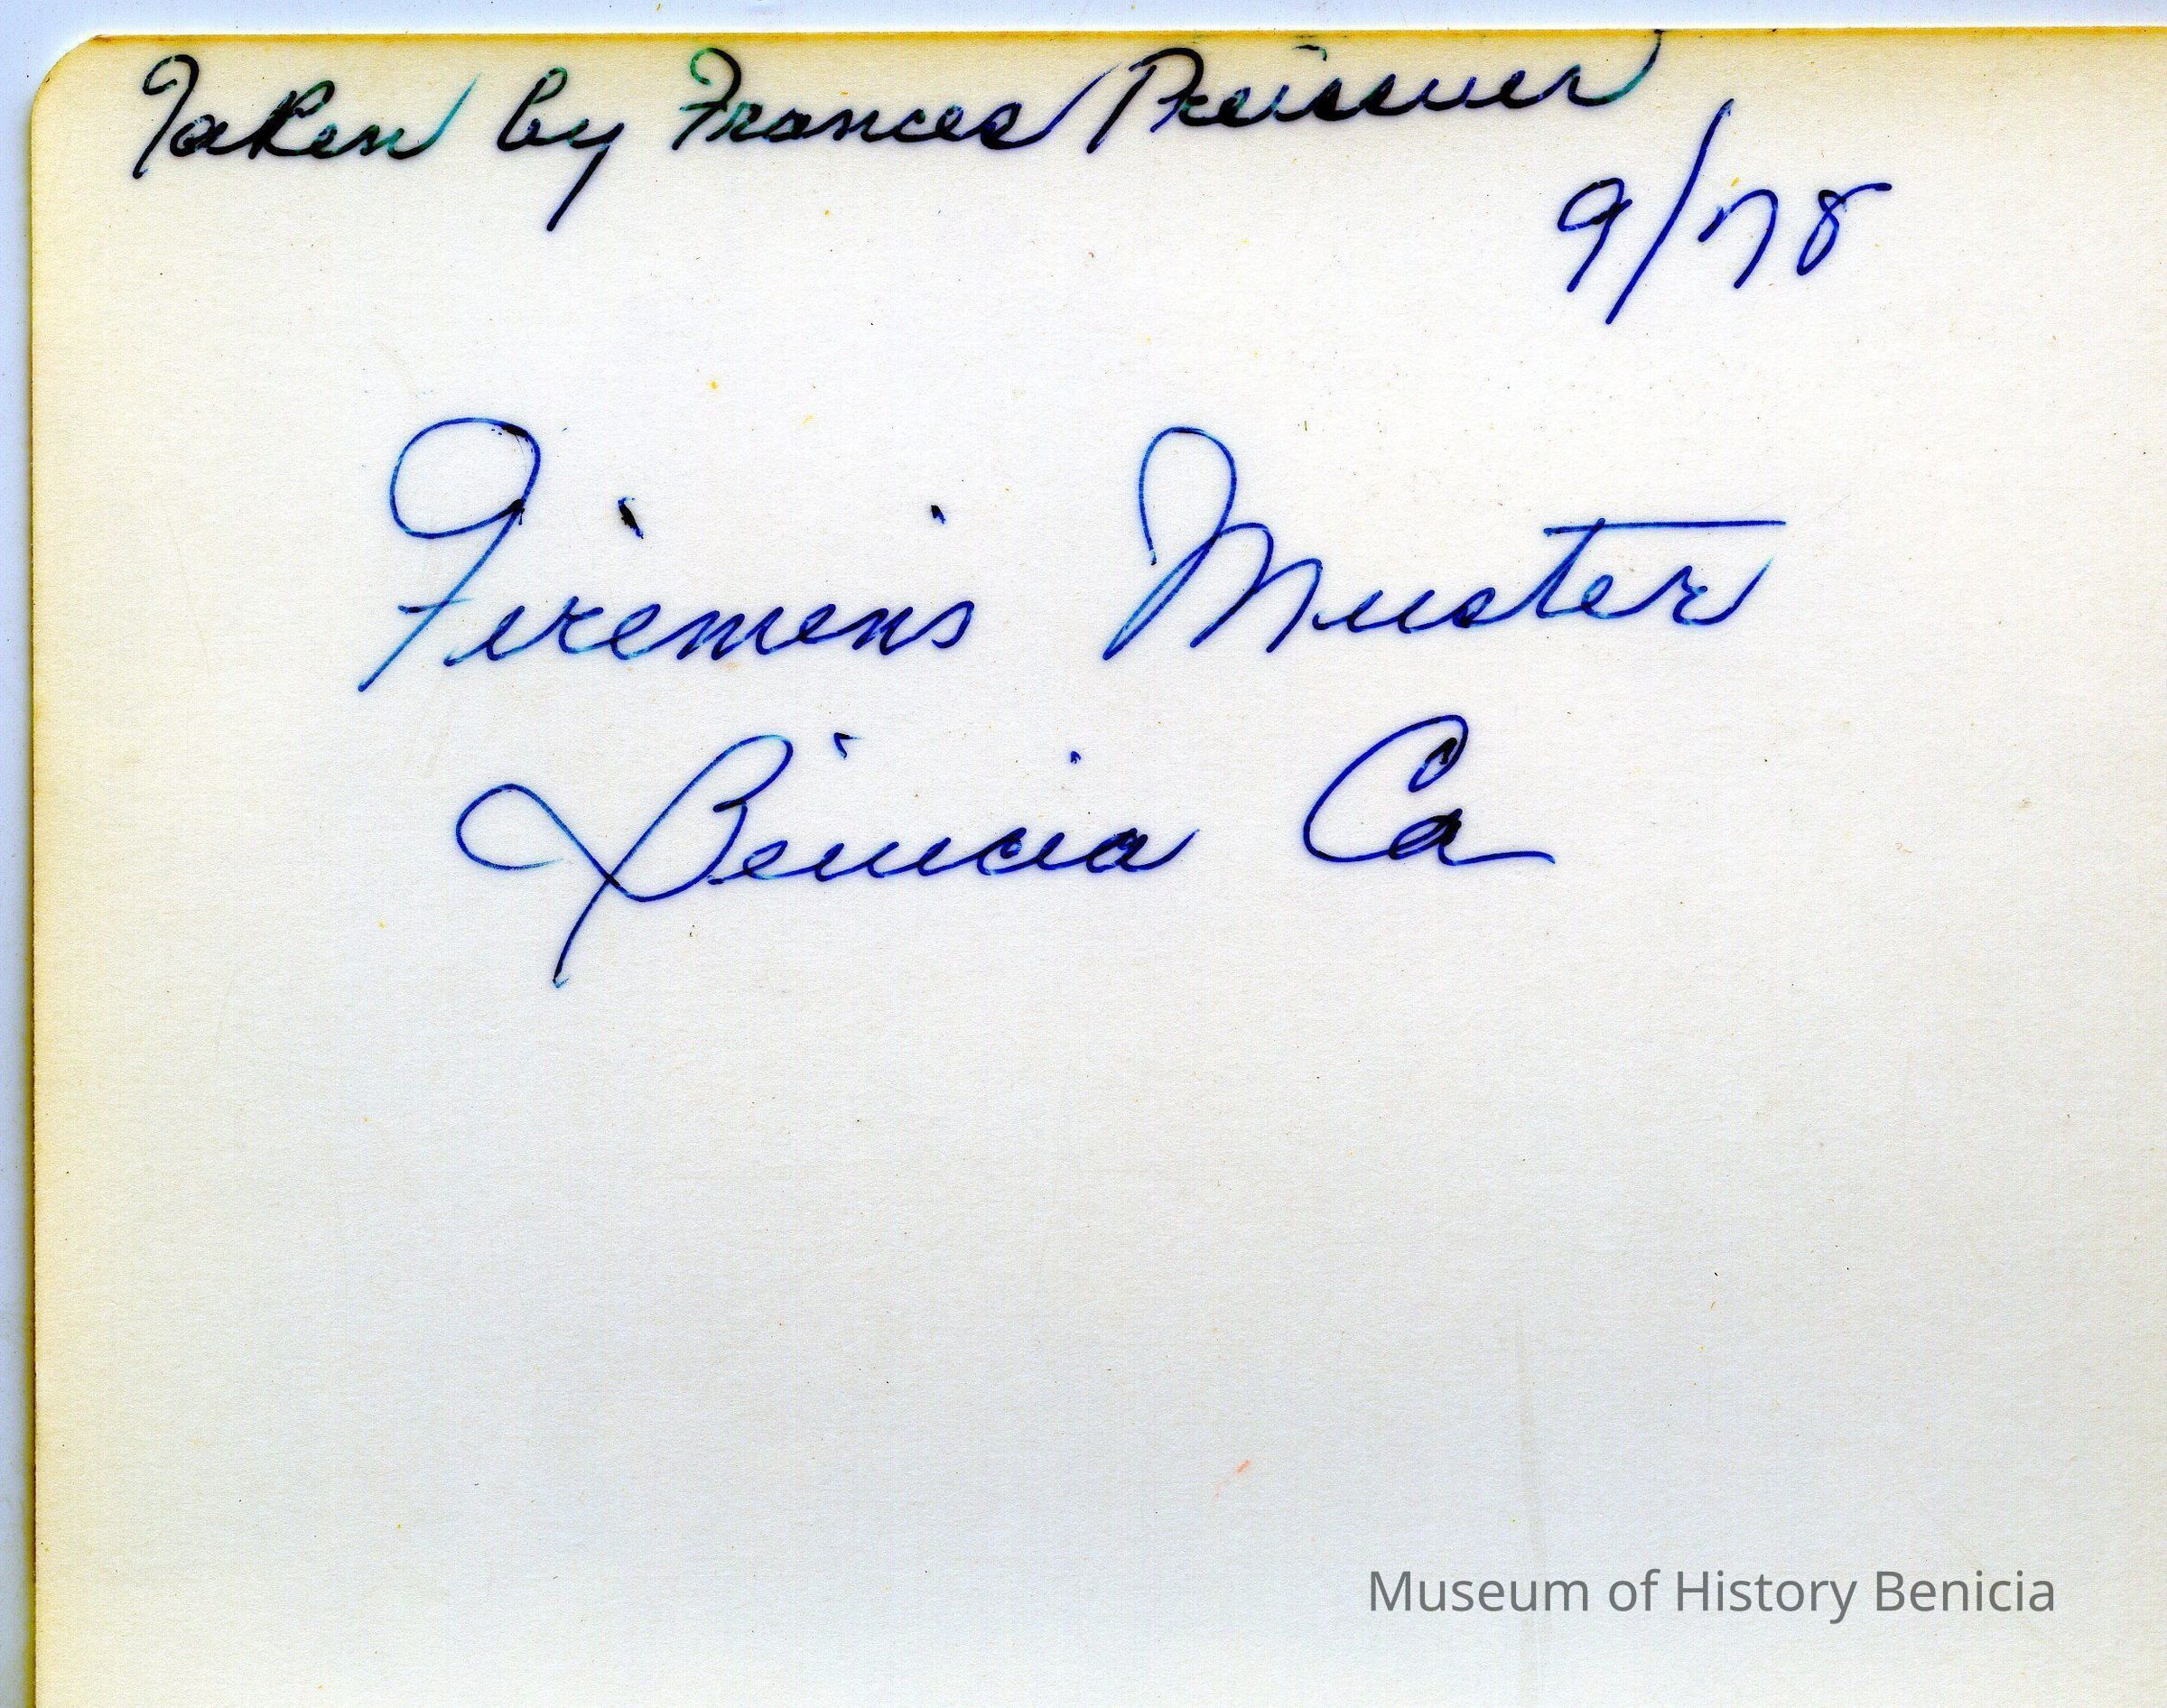 Taken by Frances Preisner
9/78
Firemen's Muster
Benicia Ca
Museum of History Benicia